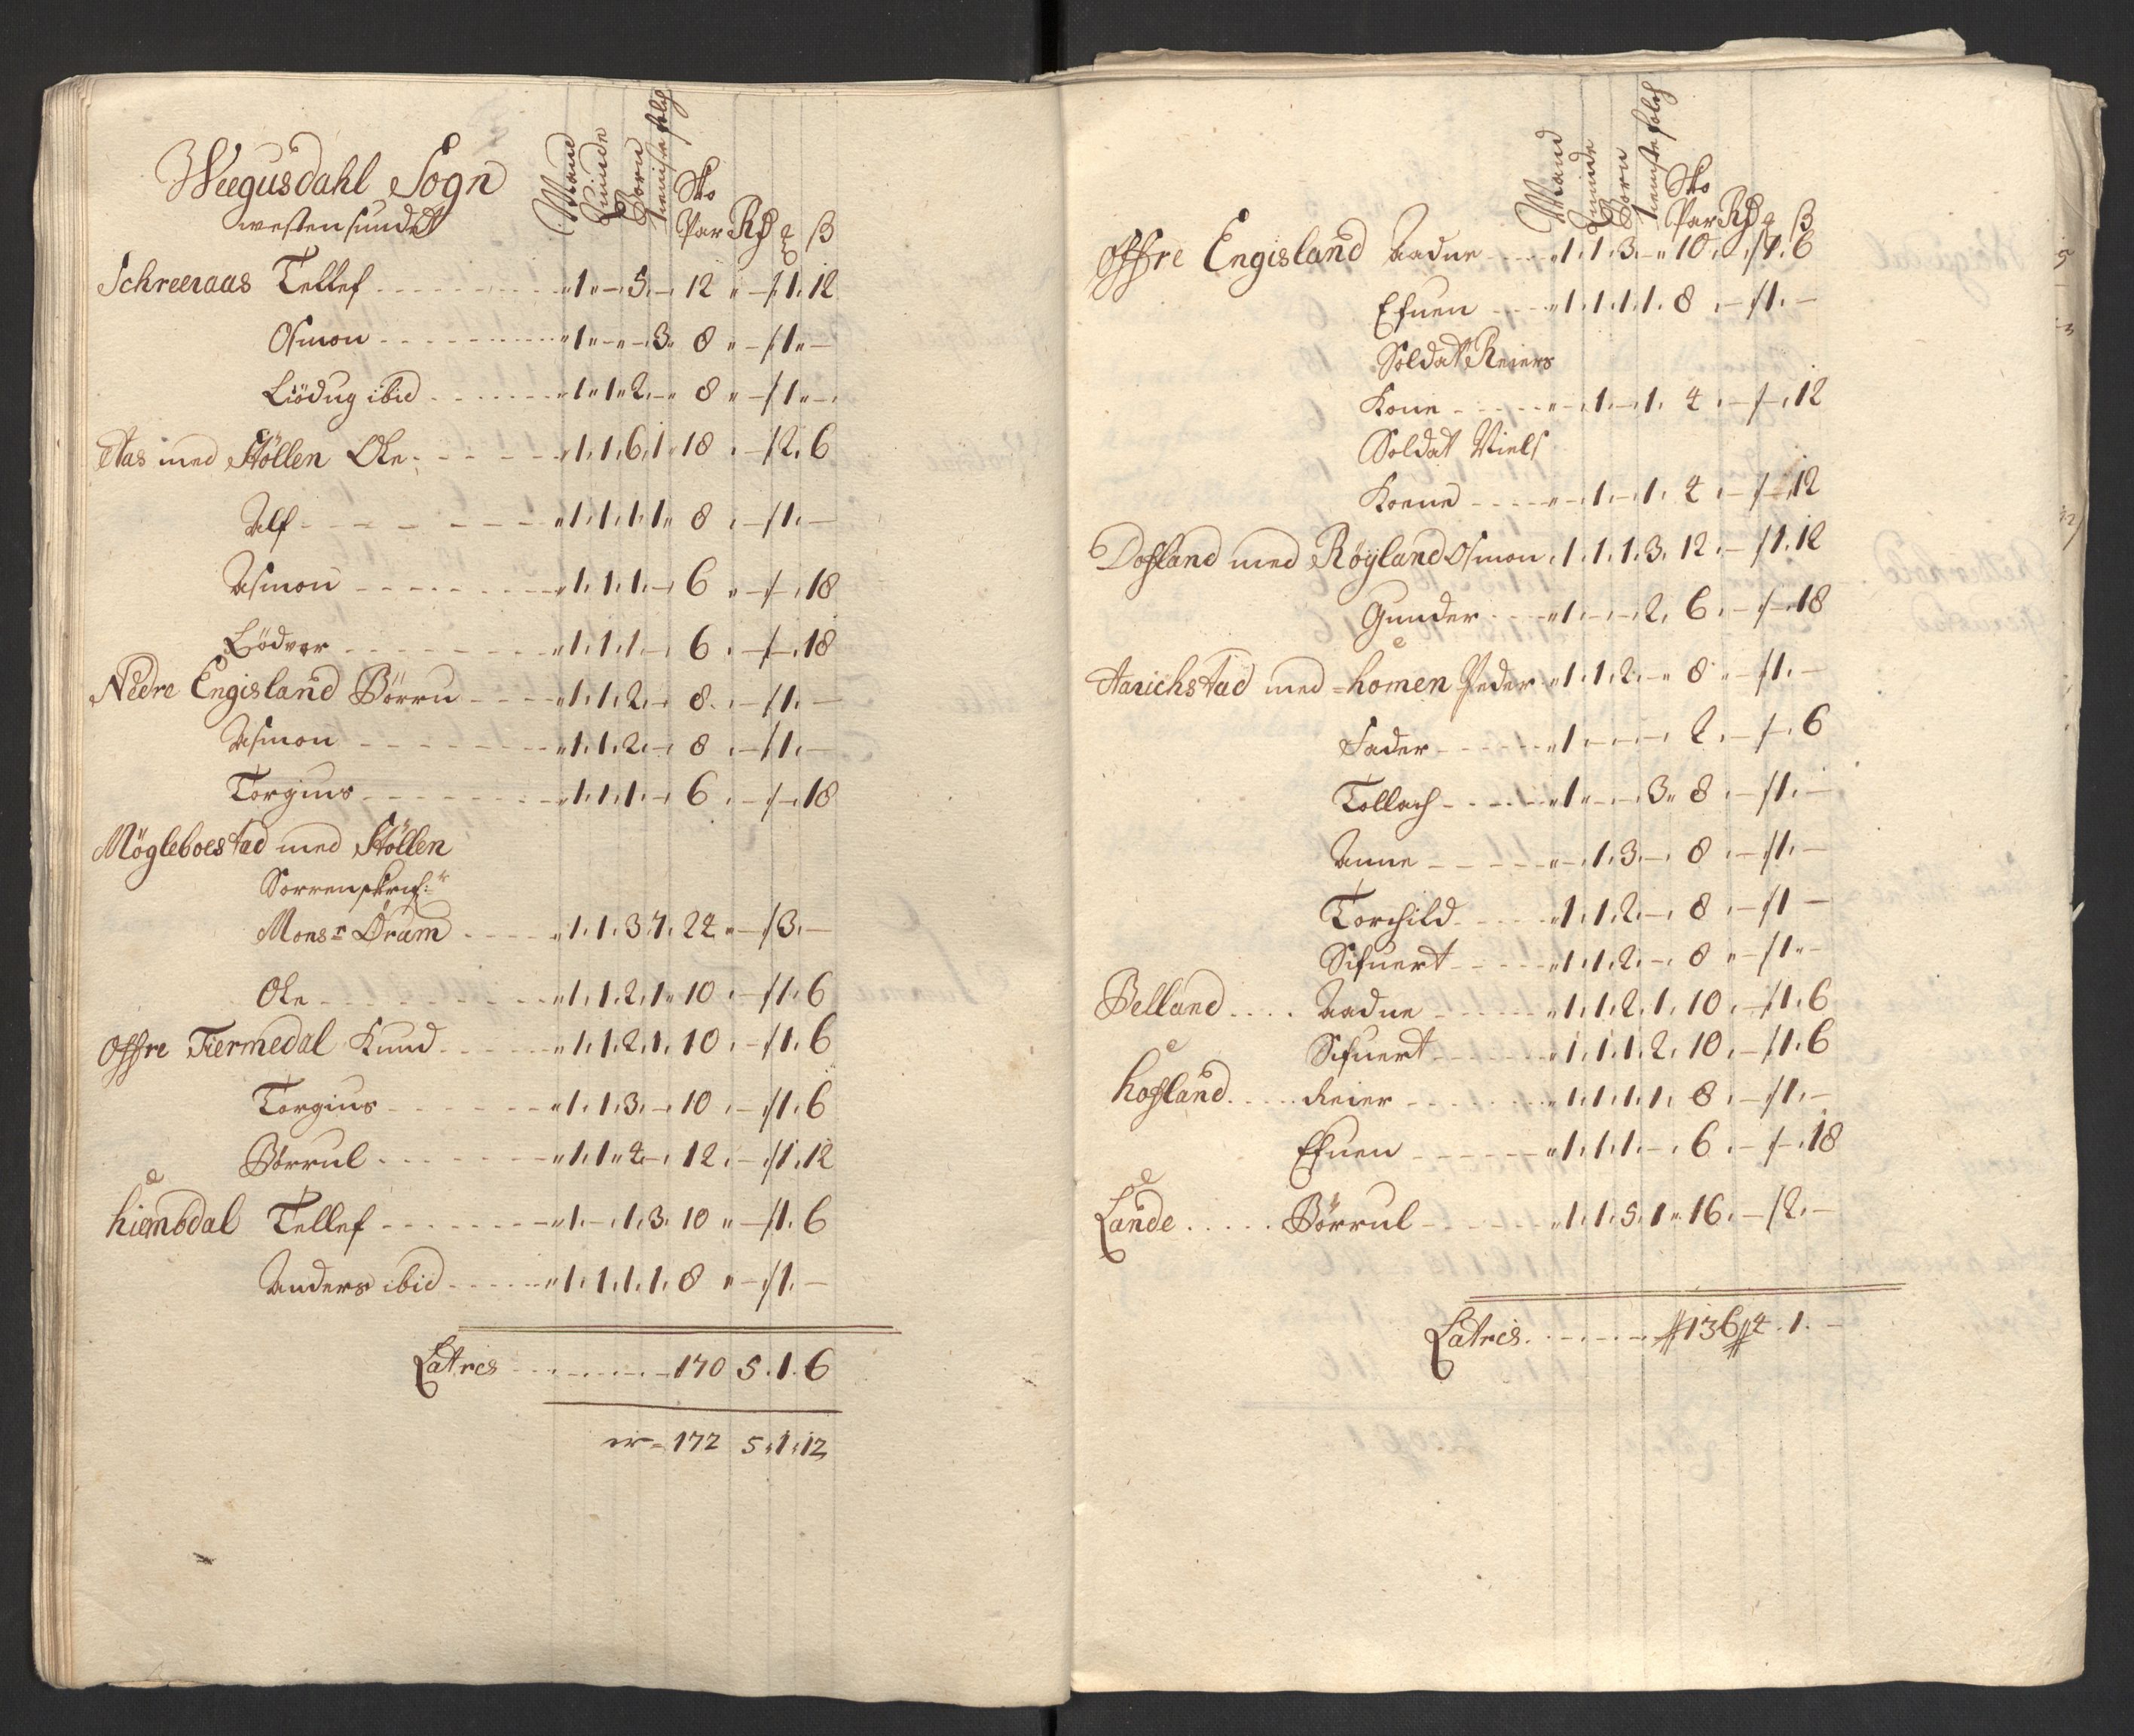 Weegusdahl Sogn
westen sundet
Mand Quinde Börn tieniste folch Sko Par Rd ß
Schreeraas Tellef - - - 1 - 5 - 12 - 1 12
Osmon - - - 1 - - 3 8 - 1 -
Liödug ibid - - - 1 1 2 - 8 - 1 -
Aas med Støllen Ole - - - 1 1 6 1 18 - 2 6
Alf - - - 1 1 1 1 8 - 1 -
Asmon - - - 1 1 1 - 6 - - 18
Liödver - - - 1 1 1 - 6 - - 18
Nedre Engisland Börru - - - 1 1 2 - 8 - 1 -
Asmon - - - 1 1 2 - 8 - 1 -
Torgius - - - 1 1 1 - 6 - - 18
Mögleboestad med Støllen
Sorrenskrif:r
Monsr Oram - - - 1 1 3 7 24 - 3 -
Ole - - - 1 1 2 1 10 - 1 6
Offre Tiermedal Knud - - - 1 1 2 1 10 - 1 6
Torgius - - - 1 1 3 - 10 - 1 6
Börrul - - - 1 1 4 - 12 - 1 12
hiembdal Tellef - - - 1 - 1 3 10 - 1 6
Anders ibid - - - 1 1 1 1 8 - 1 -
Latris - - - 170 5 1 6
er = 172 5 1 12
Mand Quinde Börn tieniste folch Sko Par Rd ß
Offre Engisland Aadne - - - 1 1 3 - 10 - 1 6
Efuen - - - 1 1 1 1 8 - 1 -
Soldat Reiers
Kone - - - - 1 - 1 4 - - 12
Soldat Niels
Koene - - - - 1 - 1 4 - - 12
Dosland med Røyland Osmon 1 1 1 3 12 - 1 12
Gunder - - - 1 - - 2 6 - - 18
Aarichstad med homen Peder 1 1 2 - 8 - 1 -
Fader - - - 1 - - - 2 - - 6
Tollach - - - 1 - - 3 8 - 1 -
Anne - - - - 1 3 - 8 - 1 -
Torchild - - - 1 1 2 - 8 - 1 -
Sifuert - - - 1 1 2 - 8 - 1 -
Belland .... Aadne - - - 1 1 2 1 10 - 1 6
Sifuert - - - 1 1 1 2 10 - 1 6
hosland .... Reier - - - 1 1 1 1 8 - 1 -
Efuen - - - 1 1 1 - 6 - - 18
Lande ..... Börrul - - - 1 1 5 1 16 - 2 -
Latris - - - 136 4 1 -